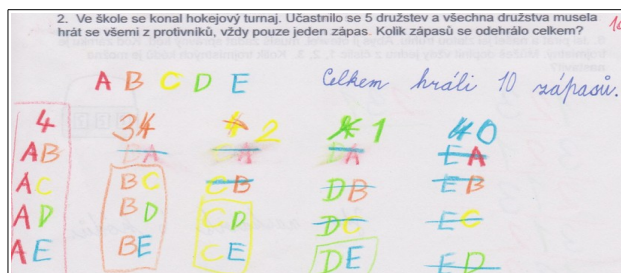 2. Ve škole se konal hokejový turnaj. Účastnilo se 5 družstev a všechna družstva musela
hrát se všemi z protivníků, vždy pouze jeden zápas. Kolik zápasů se odehrálo celkem?
A B C D E Celkem hráli 10 zápasů.
4 34 4 2 4 1 4 0
AB BA CA DA EA
AC BC CB DB EB
AD BD CD DC EC
AE BE CE DE ED